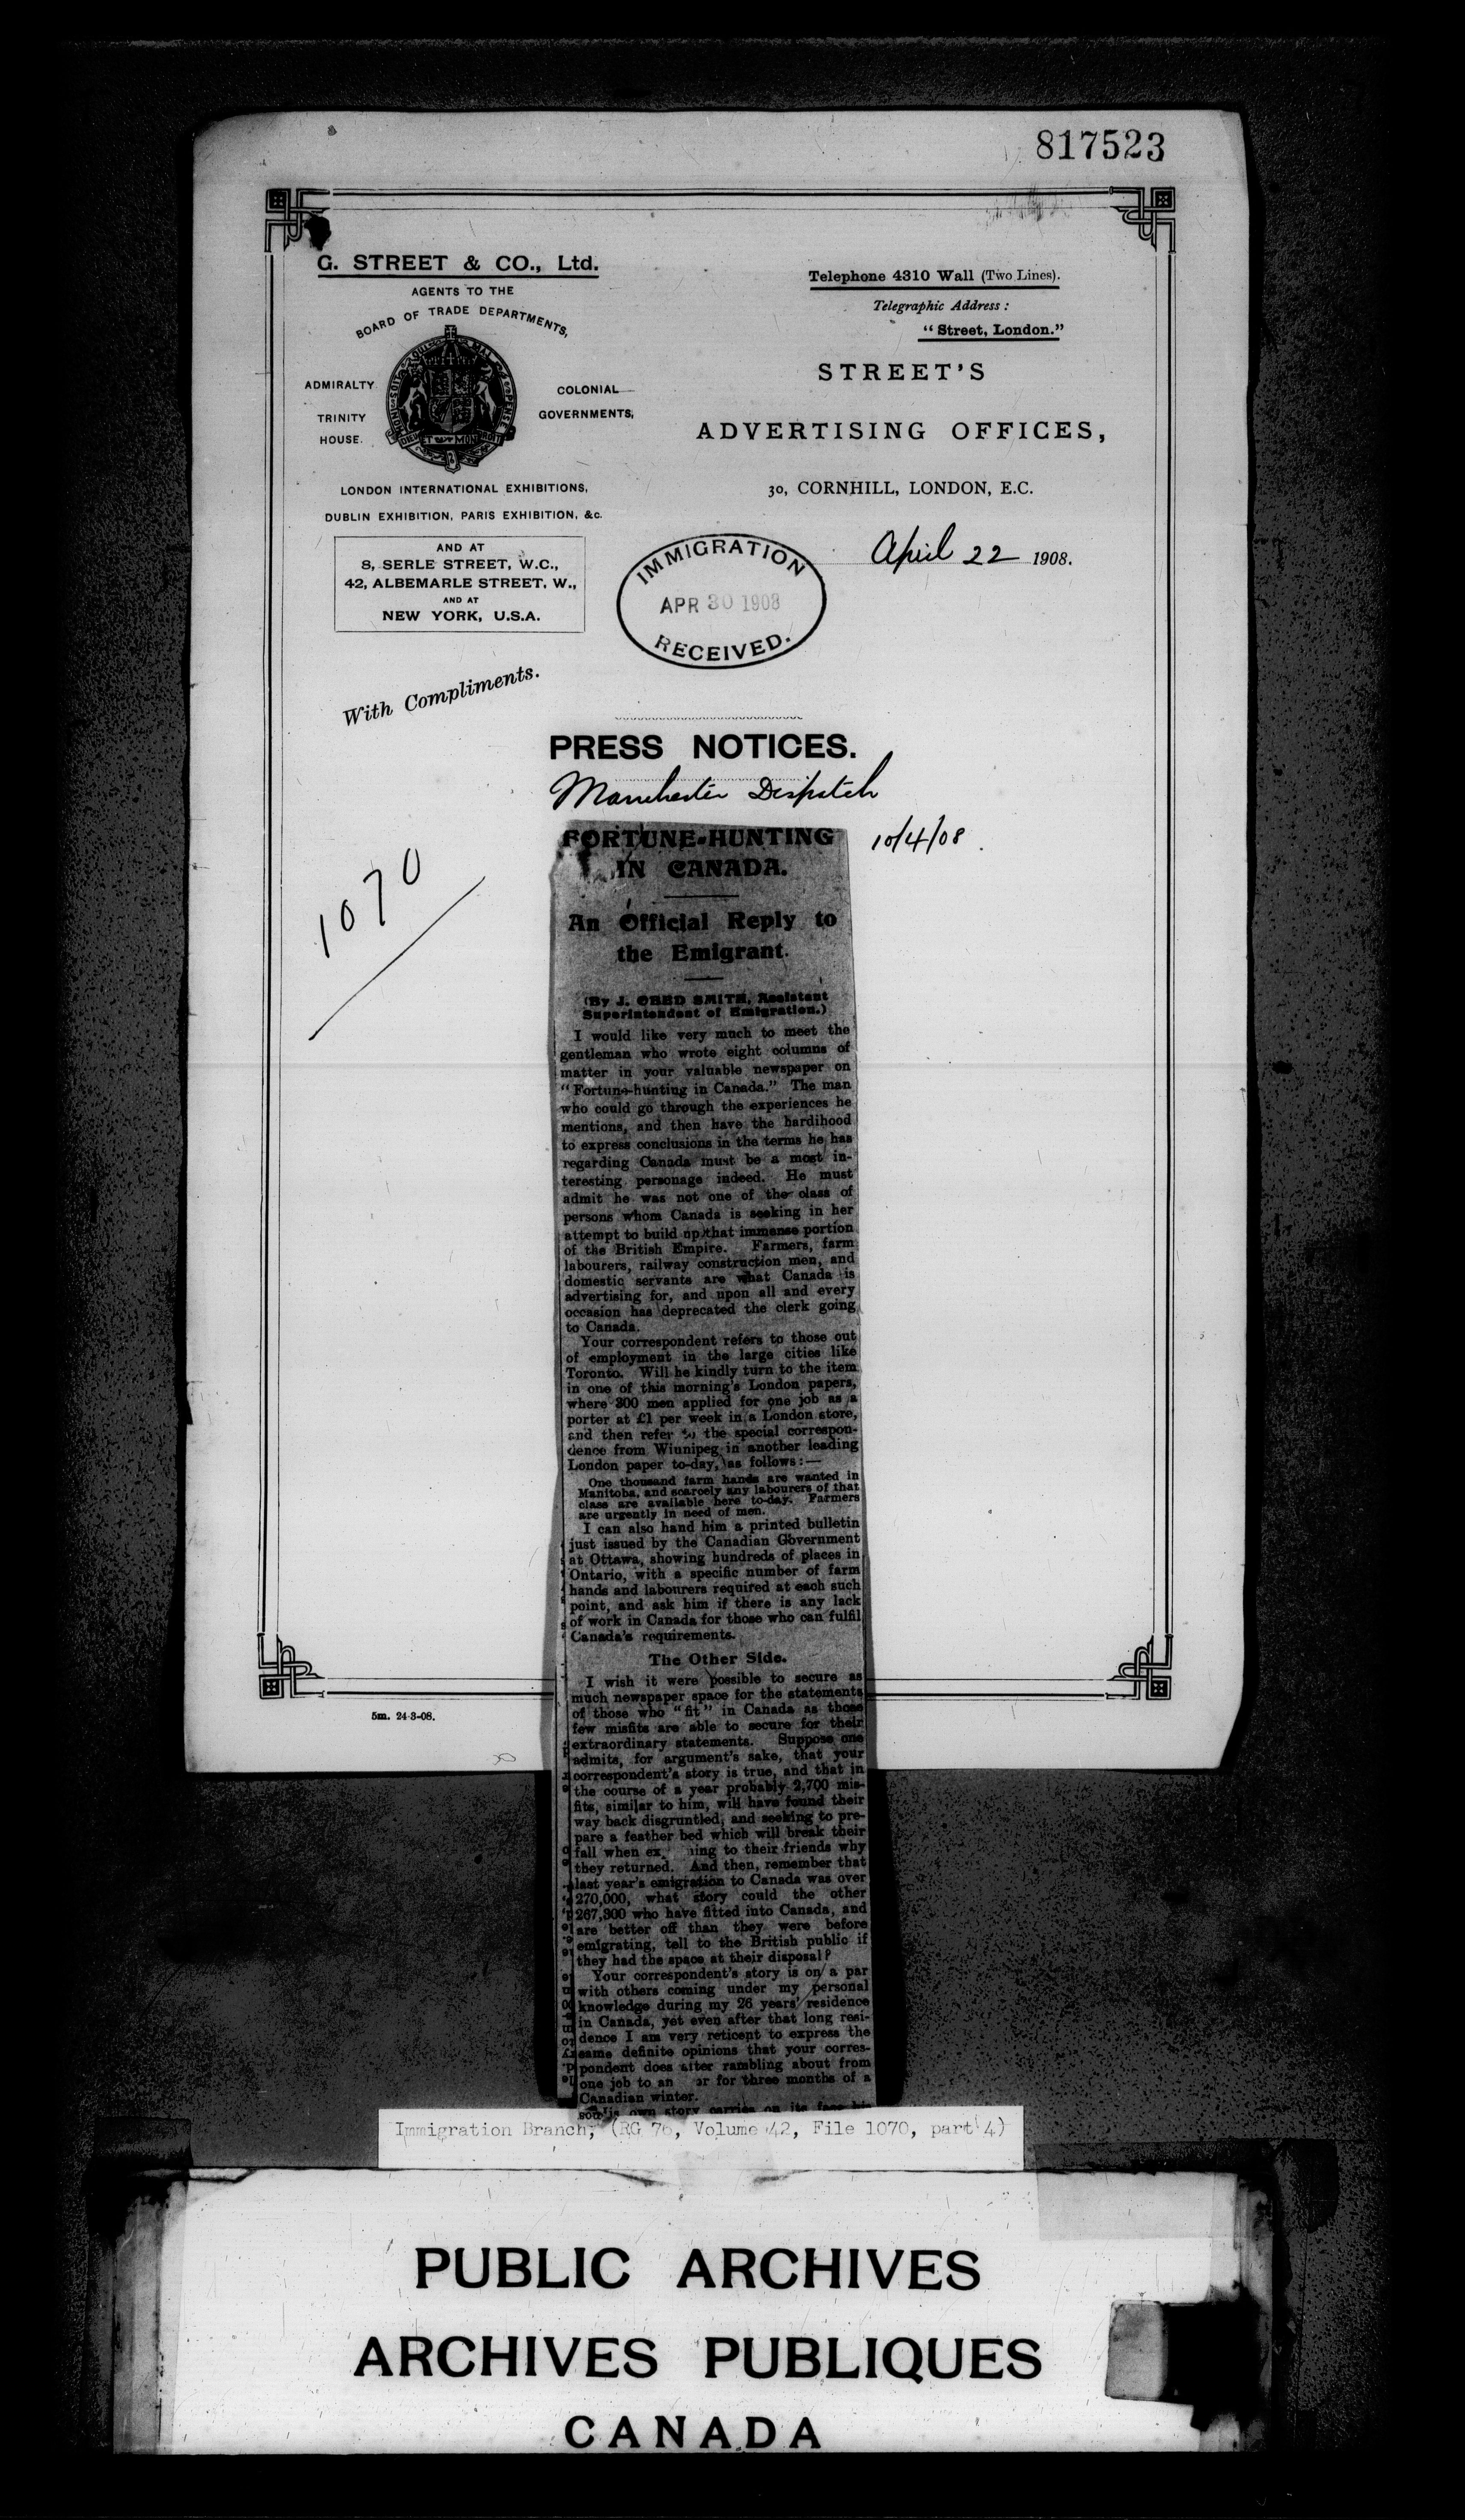 817523
G. STREET & CO., Ltd.
AGENTS TO THE
BOARD OF TRADE DEPARTMENTS,
ADMIRALTY
TRINITY
HOUSE.
COLONIAL
GOVERNMENTS,
LONDON INTERNATIONAL EXHIBITIONS,
DUBLIN EXHIBITION, PARIS EXHIBITION, &c.
AND AT
8, SERLE STREET, W.C.,
42, ALBEMARLE STREET, W.,
AND AT
NEW YORK, U.S.A.
Telephone 4310 Wall (Two Lines).
Telegraphic Address:
"Street, London."
STREET'S
ADVERTISING OFFICES,
30, CORNHILL, LONDON, E.C.
April 22 1908.
IMMIGRATION
APR 30 1908
RECEIVED.
With Compliments.
PRESS NOTICES.
Manchester Dispatch
10/4/08.
1070
FORTUNE-HUNTING
IN CANADA.
An Official Reply to
the Emigrant.
(By J. OBED SMITH, Assistant
Superintendent of Emigration.)
I would like very much to meet the
gentleman who wrote eight columns of
matter in your valuable newspaper on
"Fortune-hunting in Canada." The man
who could go through the experiences he
mentions, and then have the hardihood
to express conclusions in the terms he has
regarding Canada must be a most in-
teresting personage indeed. He must
admit he was not one of the class of
persons whom Canada is seeking in her
attempt to build up that immense portion
of the British Empire. Farmers, farm
labourers, railway construction men, and
domestic servants are what Canada is
advertising for, and upon all and every
occasion has deprecated the clerk going
to Canada.
Your correspondent refers to those out
of employment in the large cities like
Toronto. Will he kindly turn to the item
in one of this morning's London papers,
where 300 men applied for one job as a
porter at £1 per week in a London store,
and then refer to the special correspon-
dence from Winnipeg in another leading
London paper to-day, as follows:—
One thousand farm hands are wanted in
Manitoba, and scarcely any labourers of that
class are available here to-day. Farmers
are urgently in need of men.
I can also hand him a printed bulletin
just issued by the Canadian Government
at Ottawa, showing hundreds of places in
Ontario, with a specific number of farm
hands and labourers required at each such
point, and ask him if there is any lack
of work in Canada for those who can fulfil
Canada's requirements.
The Other Side.
I wish it were possible to secure as
much newspaper space for the statements
of those who "fit" in Canada as those
few misfits are able to secure for their
extraordinary statements. Suppose one
admits, for argument's sake, that your
correspondent's story is true, and that in
the course of a year probably 2,700 mis-
fits, similar to him, will have found their
way back disgruntled, and seeking to pre-
pare a feather bed which will break their
fall when ex ing to their friends why
they returned. And then, remember that
last year's emigration to Canada was over
270,000, what story could the other
267,300 who have fitted into Canada, and
are better off than they were before
emigrating, tell to the British public if
they had the space at their disposal?
Your correspondent's story is on a par
with others coming under my personal
knowledge during my 26 years' residence
in Canada, yet even after that long resi-
dence I am very reticent to express the
same definite opinions that your corres-
pondent does after rambling about from
one job to an er for three months of a
Canadian winter.
own story carries on its face his
5m. 24-3-08.
Immigration Branch, (RG 76, Volume 42, File 1070, part 4)
PUBLIC ARCHIVES
ARCHIVES PUBLIQUES
CANADA